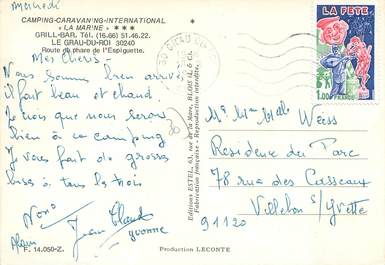 Mercredi
CAMPING-CARAVANING-INTERNATIONAL
« LA MARINE » ★★★
GRILL-BAR. Tél. (16.66) 51.46.22.
LE GRAU-DU-ROI 30240
Route du phare de l'Espiguette.
Mes Chers -
Nous somm bien arrivés
il fait beau et chaud.
Je crois que nous serons
bien à ce camping
Je vous fait de grosses
bises à tous les trois
Nono
Alain
Jean Claude
yvonne
F. 14.050-Z.
Production LECONTE
Editions ESTEL, 63, rue de la Mare, BLOIS (L. & C).
Fabrication française - Reproduction interdite.
30
LA FETE
1.00 FRANCE
Mr Mme Melle Weiss
Residence du Parc
78 rue des Casseaux
Villebon s/Yvette
91120